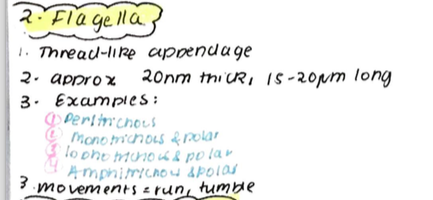 2. Flagella
1. Thread-like appendage
2. approx 20nm thick, 15-20µm long
3. Examples:
① Peritrichous
② Monotrichous & polar
③ lophotrichous & polar
④ Amphitrichous & polar
3. movements = run, tumble